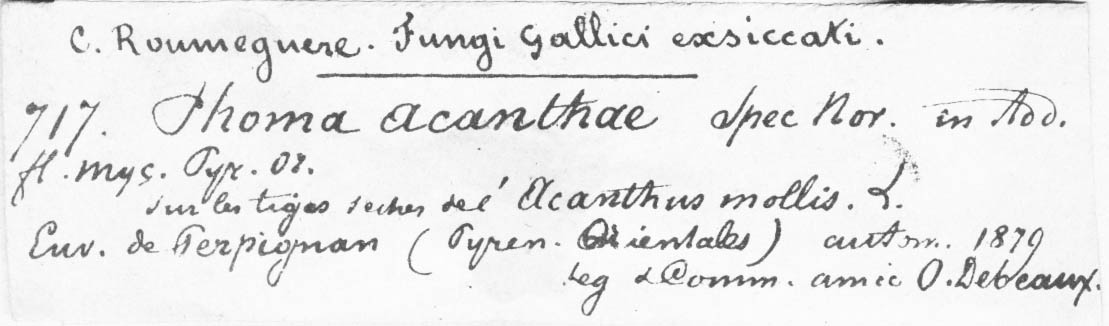 C. Roumeguere. Fungi Gallici exsiccati.
717. Phoma acanthae spec Nov. in Add.
fl. myc. Pyr. Or.
sur les tiges seches de l' Acanthus mollis. L.
Env. de Perpignan (Pyren. Orientales) autom. 1879
leg & Comm. amic O. Debeaux.